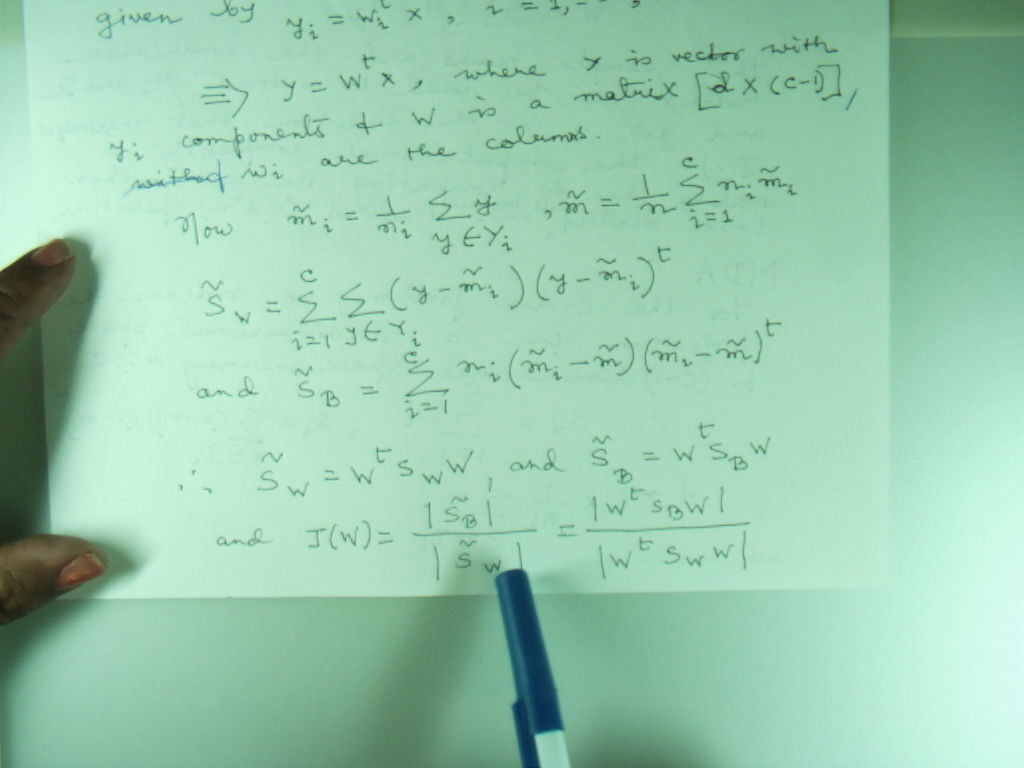 given by y_i = w_i^t x, i = 1,--,
⇒ y = W^t x, where y is vector with
y_i components & W is a matrix [d X (c-1)],
w_i are the columns.
Now m̃_i = 1/n_i Σ_{y∈Y_i} y, m̃ = 1/n Σ_{i=1}^{c} n_i m̃_i
S̃_W = Σ_{i=1}^{c} Σ_{y∈Y_i} (y - m̃_i)(y - m̃_i)^t
and S̃_B = Σ_{i=1}^{c} n_i (m̃_i - m̃)(m̃_i - m̃)^t
∴ S̃_W = W^t S_W W, and S̃_B = W^t S_B W
and J(W) = |S̃_B| / |S̃_W| = |W^t S_B W| / |W^t S_W W|